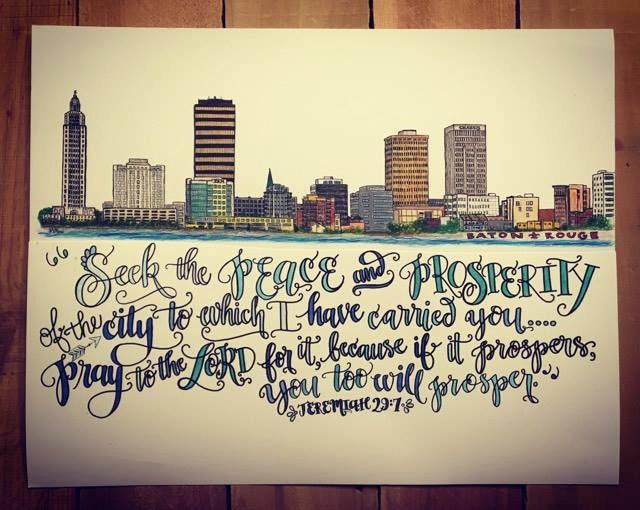 BATON ROUGE
“Seek the PEACE and PROSPERITY
of the city to which I have carried you....
pray to the LORD for it, because if it prospers,
you too will prosper.”
JEREMIAH 29:7